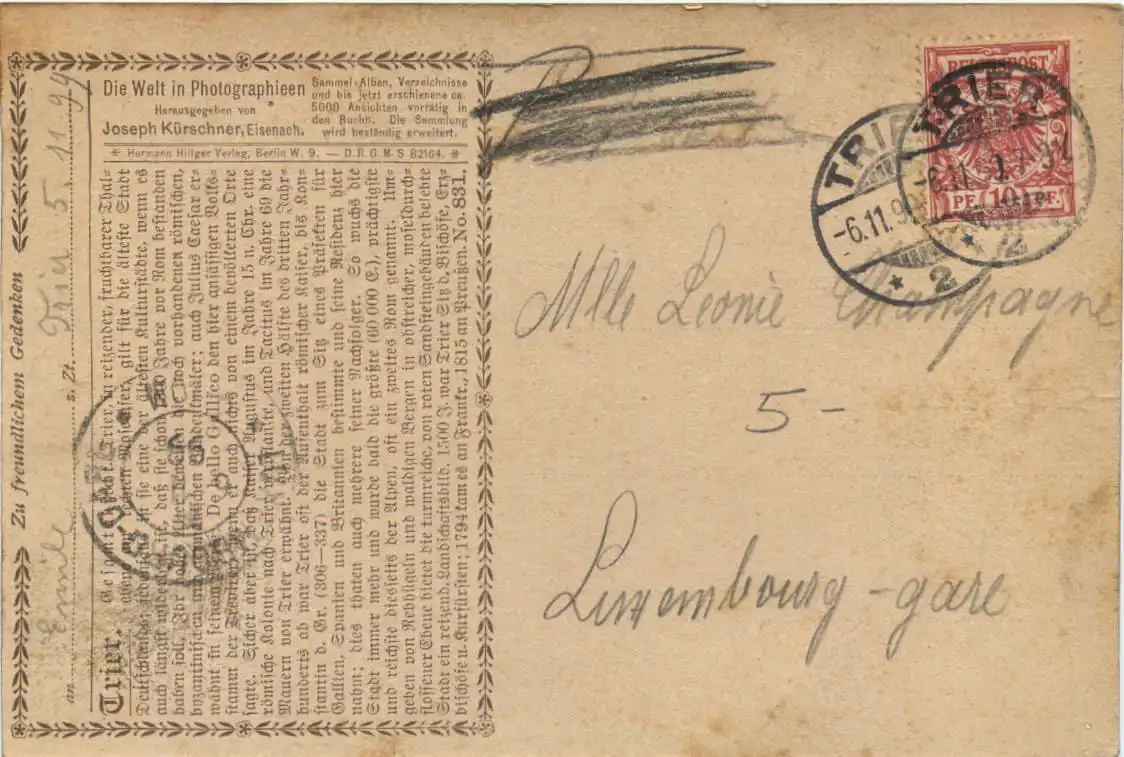 Die Welt in Photographieen
Herausgegeben von
Joseph Kürschner, Eisenach.
Sammel-Alben, Verzeichnisse
und bis jetzt erschienene ca.
5000 Ansichten vorrätig in
den Buchh. Die Sammlung
wird beständig erweitert.
* Hermann Hillger Verlag, Berlin W. 9. — D. R. G. M. S 82164. *
Trier. Gesamtansicht. Trier, in reizender, fruchtbarer Thal-
ebene der Mosel, gilt für die älteste Stadt
Deutschlands, jedenfalls ist sie eine der ältesten Kulturstädte, wenn es
auch längst widerlegt ist, daß sie schon 1300 Jahre vor Rom bestanden
haben soll. Ihr hohes Alter beweisen die noch vorhandenen römischen,
byzantinischen und Baudenkmäler; auch Julius Caesar er-
wähnt in seinem De bello Gallico den hier ansässigen Volks-
stamm der Treverer, wenn er auch nichts von einem bevölkerten Orte
sagte. Sicher aber ist, daß Kaiser Augustus im Jahre 15 n. Chr. eine
römische Kolonie nach Trier verpflanzte, und Tacitus im Jahre 69 die
Mauern von Trier erwähnt. Von der zweiten Hälfte des dritten Jahr-
hunderts ab war Trier oft der Aufenthalt römischer Kaiser, bis Kon-
stantin d. Gr. (306—337) die Stadt zum Sitz eines Präfekten für
Gallien, Spanien und Britannien bestimmte und seine Residenz hier
nahm; dies thaten auch mehrere seiner Nachfolger. So wuchs die
Stadt immer mehr und wurde bald die größte (60 000 E.), prächtigste
und reichste diesseits der Alpen, oft ein zweites Rom genannt. Um-
geben von Rebhügeln und waldigen Bergen in obstreicher, moseldurch-
flossener Ebene bietet die turmreiche, von roten Sandsteingebäuden belebte
Stadt ein reizend. Landschaftsbild. 1500 J. war Trier Sitz d. Bischöfe, Erz-
bischöfe u. Kurfürsten; 1794 kam es an Frankr., 1815 an Preußen. No. 831.
Zu freundlichem Gedenken
an Emile z. Zt. Trier 5. 11. 99
REICHSPOST
PF. 10 PF.
TRIER
-6.11.99
* 2
TRIER
-6.11.
* 2
Mlle Leonie Champagne
5-
Luxembourg-gare